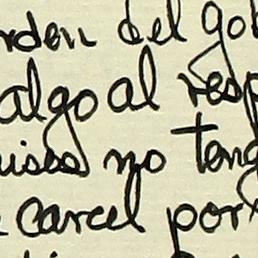 orden del gob
algo al resp
uises no teng
carcel por